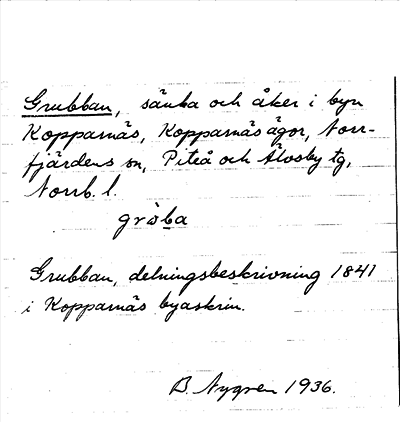 Grubban, sänka och åker i byn
Kopparnäs, Kopparnäs ägor, Norr-
fjärdens sn, Piteå och Älvsby tg,
Norrb. l.
gròba
Grubban, delningsbeskrivning 1841
i Kopparnäs byaskrin.
B. Nygren 1936.